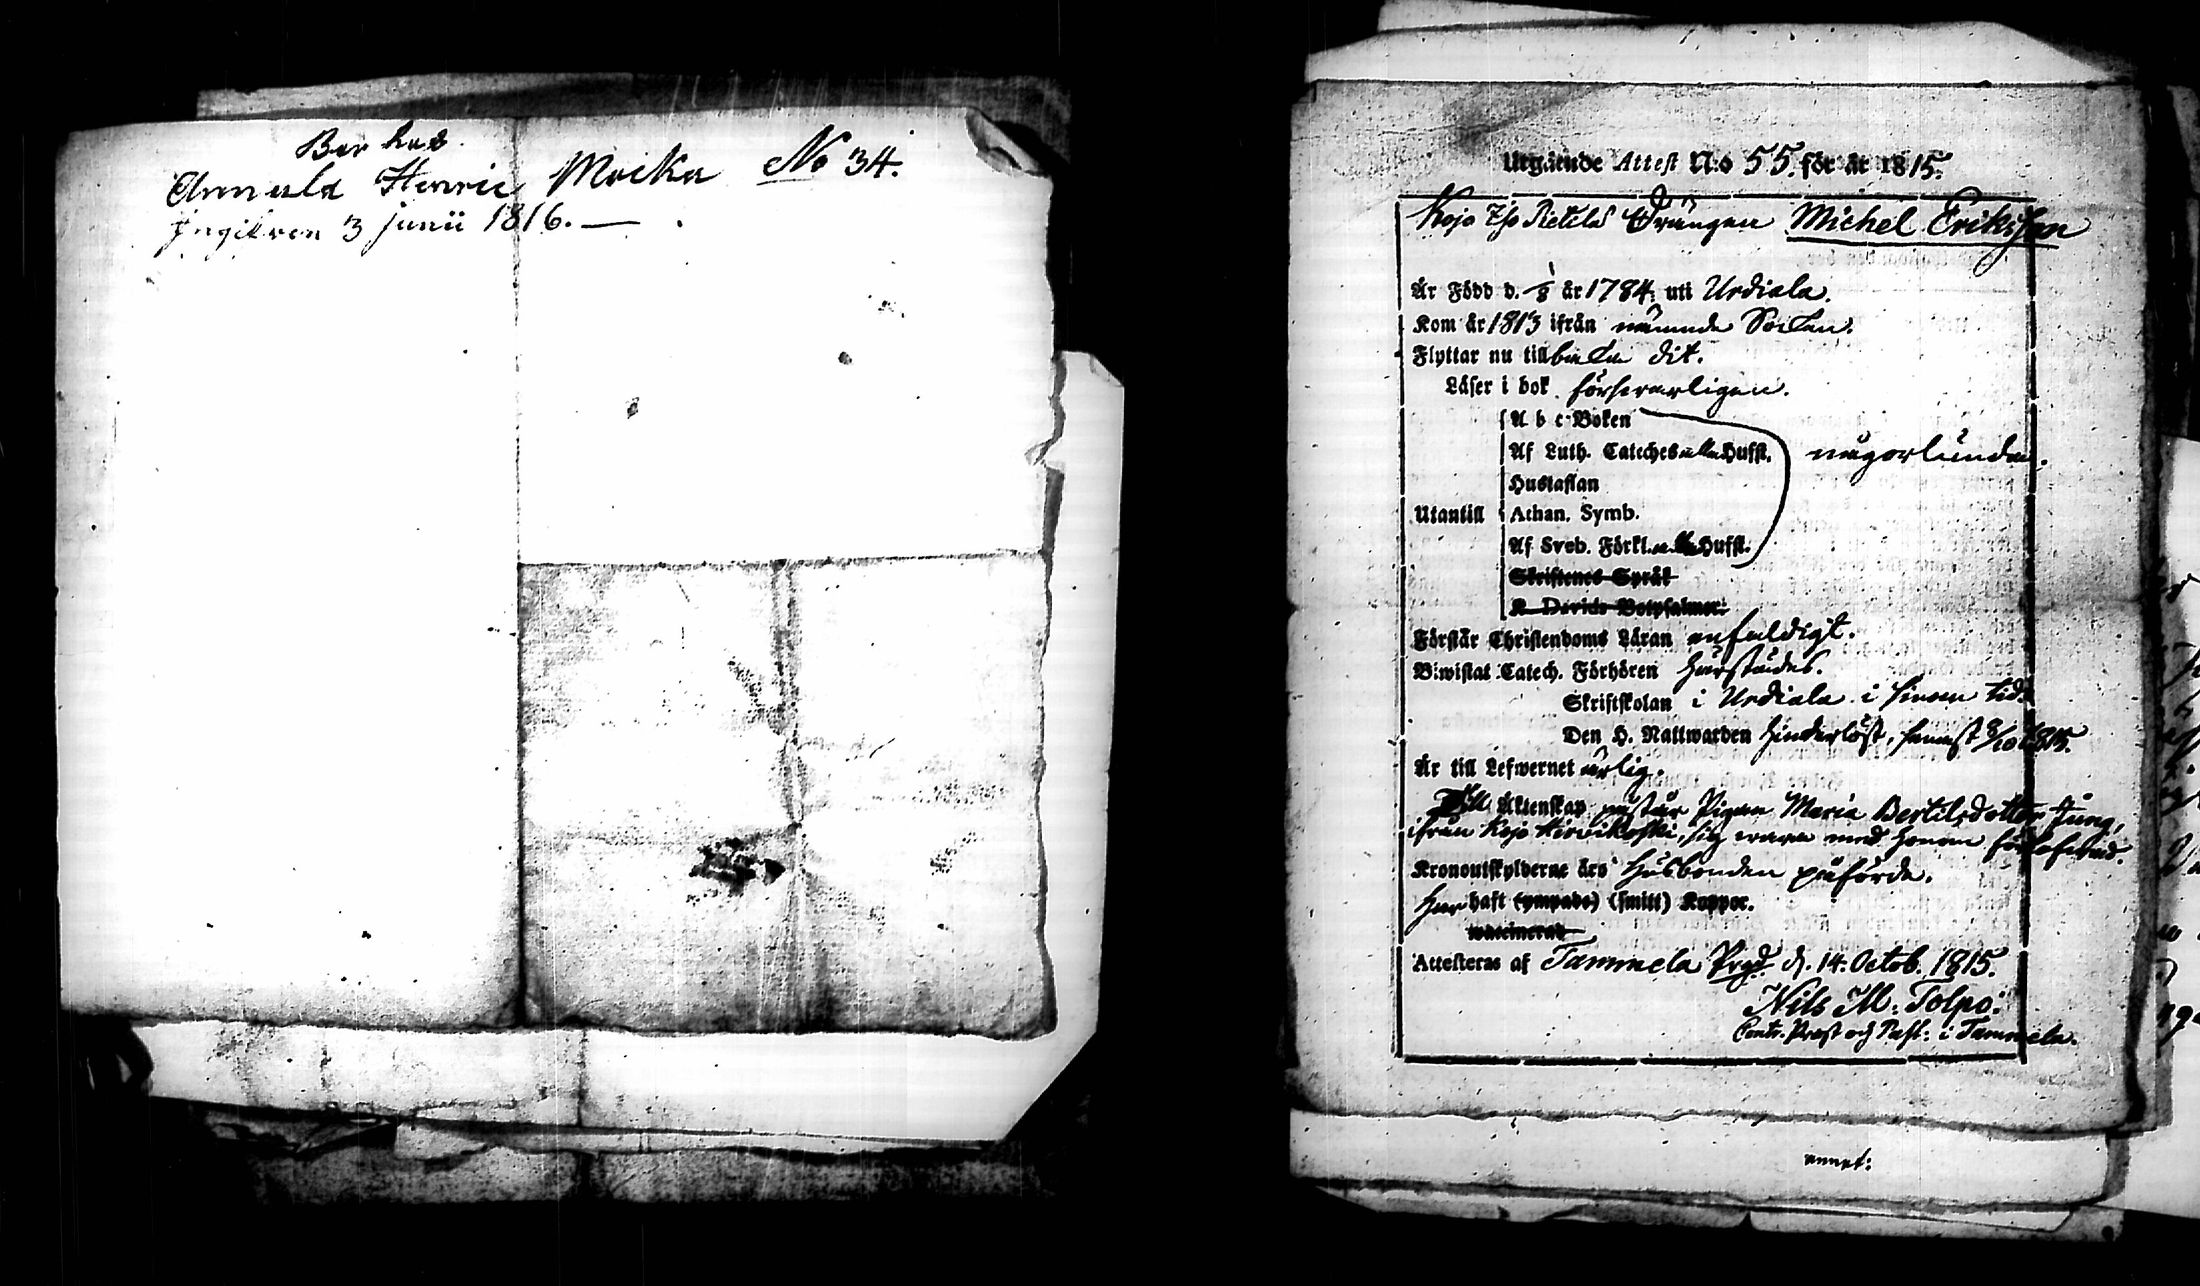 Annula Henric Mocka No 34.
Ingifven 3 junii 1816. —
Utgående Attest N:o 55. för år 1815.
Kojo Pietilä Drängen Michel Eriksson
Är Född d. 1/8 år 1784. uti Urdiala.
Kom år 1813 ifrån nämnde Socken.
Flyttar nu tillbaka dit.
Läser i bok försvarligen.
A b c Boken
Af Luth. Cateches alla Hufst. någorlunda.
Hustaflan
Utantill Athan. Symb.
Af Sveb. Förkl. alla Hufst.
Skriftenes Språk
K. Davids Botpsalmer.
Förstår Christendoms Läran enfaldigt.
Biwistat Catech. Förhören härstädes.
Skriftskolan i Urdiala i sinom tid.
Den H. Nattwarden hinderlöst, senast 8/10 1815.
Är till Lefwernet ärlig.
Till Äktenskap påstår Pigan Maria Bertilsdotter Jung,
ifrån Kojo Hirvikoski, sig wara med honom förlofwad.
Kronoutskylderne äro Husbonden påförde.
Har haft (ympade) (smitt) Koppor.
waccinerat
Attesteras af Tammela Prgd. d. 14. Octob. 1815.
Nils M. Tolpo.
Contr. Prost och Past. i Tammela.
annat: